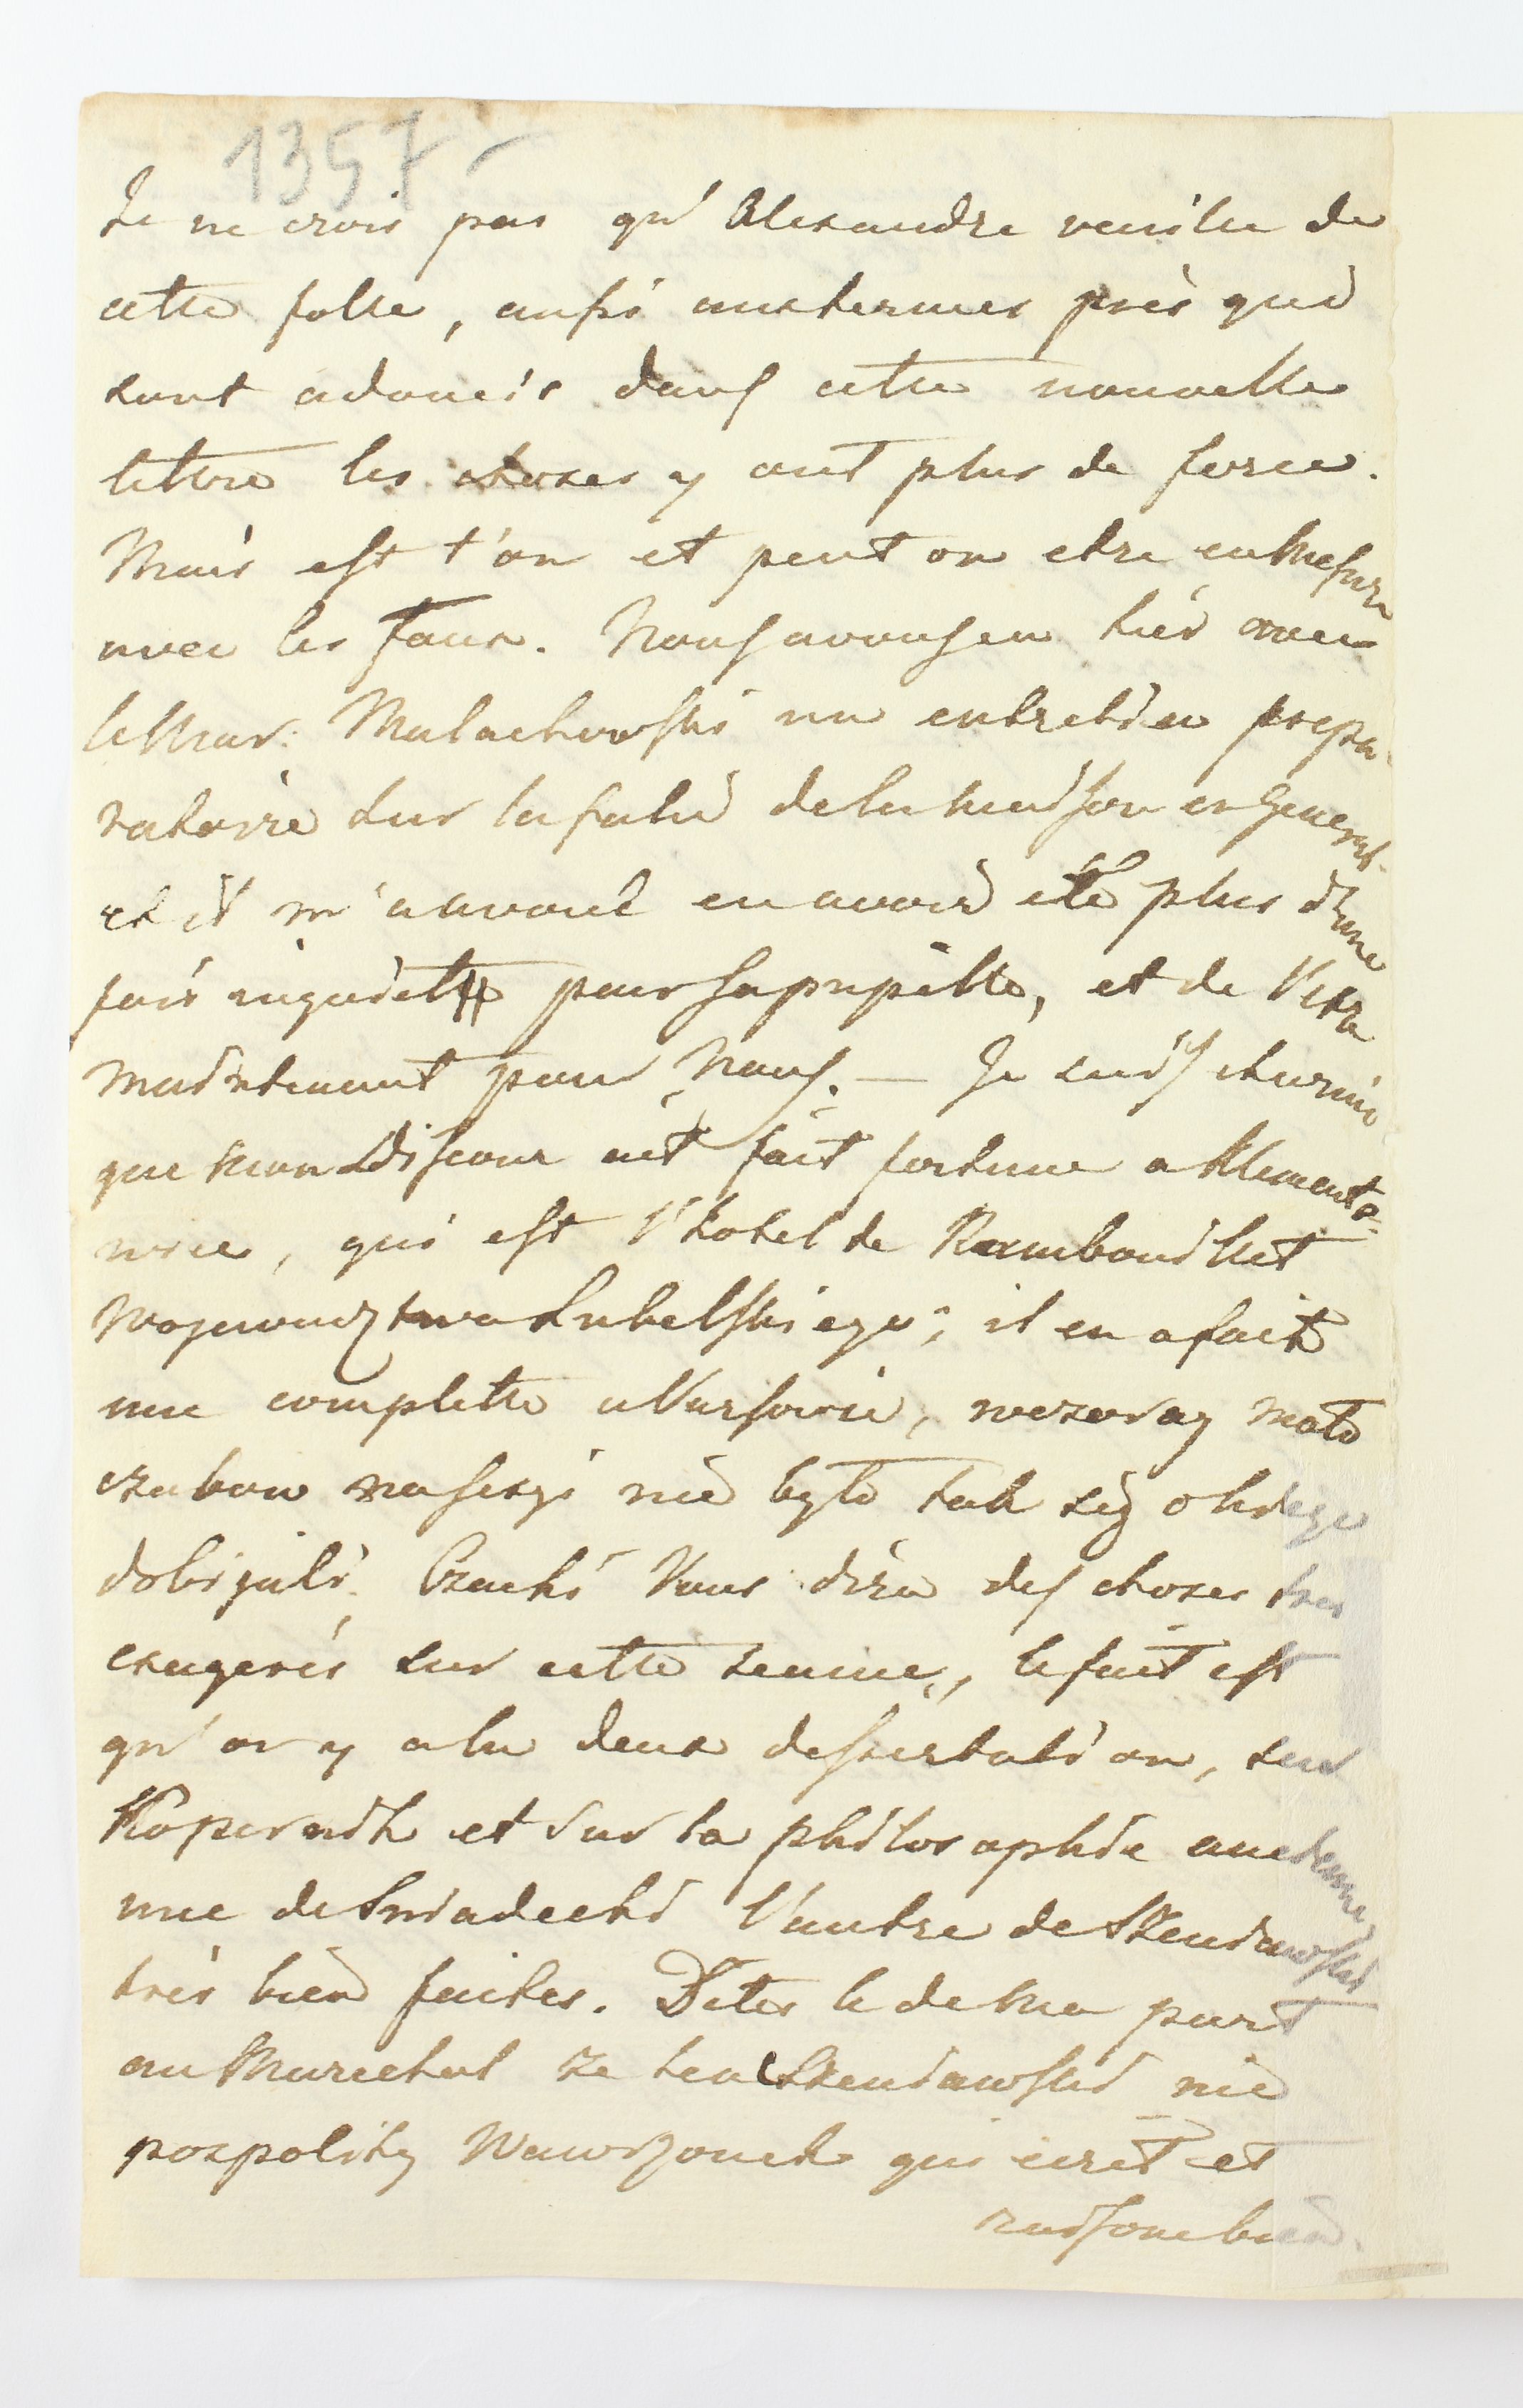 1357 -
Je ne crois pas qu'Alexandre veuille de
cette folle, aussi aux termes près qui
sont adoucis dans cette nouvelle
lettre les choses y ont plus de force.
Mais est t'on et peut on etre en Mesure
avec les foux. Nous avons eu hier avec
le Mar: Malachowski un entretien prepa
ratoire sur la folie de la maison en General
et il m'a avoué en avoir eté plus d'une
fois inquiet pour sa pupille, et de l'etre
maintenant pour Nous. — Je suis charmée
que mon Discour ait fait fortune a Klemento-
wice, qui est l'hotel de Rambouillet
Wojewodztwa Lubelskiego; il en a fait
une complette a Varsovie, wczoray mało
czubow na sessyi nie było tak się o niego
dobijali. Czacki Vous dira des choses tres
exagerés sur cette seance, le fait est
qu'on y a lu deux dissertation, sur
Kopernik et sur la philosophie ancienne
une de Sniadecki l'autre de Szeniawski
très bien faites. Dites le de Ma part
au Marechal ze ten Szeniawski nie
pospolity qui ecrit et
raisone bien.